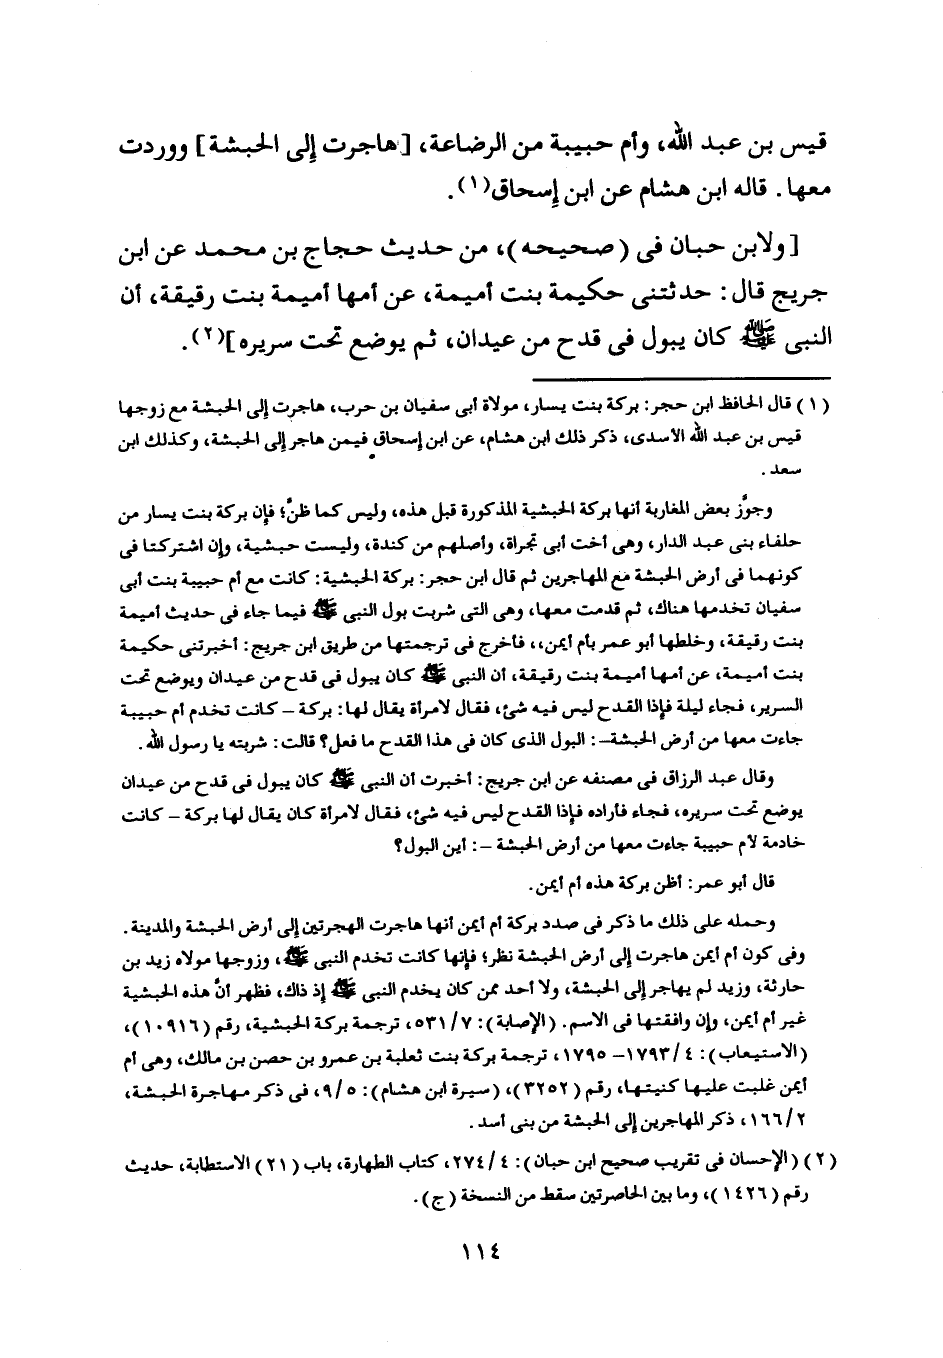 قيس بن عبد الله، وأم حبيبة من الرضاعة، [هاجرت إلى الحبشة] ووردت
معها. قاله ابن هشام عن ابن إسحاق(١).
[ولابن حبان فى (صحيحه)، من حديث حجاج بن محمد عن ابن
جريج قال: حدثتنى حكيمة بنت أميمة، عن أمها أميمة بنت رقيقة، أن
النبى ﷺ كان يبول فى قدح من عيدان، ثم يوضع تحت سريره](٢).
(١) قال الحافظ ابن حجر: بركة بنت يسار، مولاة أبى سفيان بن حرب، هاجرت إلى الحبشة مع زوجها
قيس بن عبد الله الأسدى، ذكر ذلك ابن هشام، عن ابن إسحاق فيمن هاجر إلى الحبشة، وكذلك ابن
سعد.
وجوَّز بعض المغاربة أنها بركة الحبشية المذكورة قبل هذه، وليس كما ظنَّ؛ فإن بركة بنت يسار من
حلفاء بنى عبد الدار، وهى أخت أبى تجراة، وأصلهم من كندة، وليست حبشية، وإن اشتركتا فى
كونهما فى أرض الحبشة مع المهاجرين ثم قال ابن حجر: بركة الحبشية: كانت مع أم حبيبة بنت أبى
سفيان تخدمها هناك، ثم قدمت معها، وهى التى شربت بول النبى ﷺ فيما جاء فى حديث أميمة
بنت رقيقة، وخلطها أبو عمر بأم أيمن،، فأخرج فى ترجمتها من طريق ابن جريج: أخبرتنى حكيمة
بنت أميمة، عن أمها أميمة بنت رقيقة، أن النبى ﷺ كان يبول فى قدح من عيدان ويوضع تحت
السرير، فجاء ليلة فإذا القدح ليس فيه شئ، فقال لامرأة يقال لها: بركة – كانت تخدم أم حبيبة
جاءت معها من أرض الحبشة–: البول الذى كان فى هذا القدح ما فعل؟ قالت: شربته يا رسول الله.
وقال عبد الرزاق فى مصنفه عن ابن جريج: أخبرت أن النبى ﷺ كان يبول فى قدح من عيدان
يوضع تحت سريره، فجاء فأراده فإذا القدح ليس فيه شئ، فقال لامرأة كان يقال لها بركة – كانت
خادمة لأم حبيبة جاءت معها من أرض الحبشة –: أين البول؟
قال أبو عمر: أظن بركة هذه أم أيمن.
وحمله على ذلك ما ذكر فى صدد بركة أم أيمن أنها هاجرت الهجرتين إلى أرض الحبشة والمدينة.
وفى كون أم أيمن هاجرت إلى أرض الحبشة نظر؛ فإنها كانت تخدم النبى ﷺ، وزوجها مولاه زيد بن
حارثة، وزيد لم يهاجر إلى الحبشة، ولا أحد ممن كان يخدم النبى ﷺ إذ ذاك، فظهر أنَّ هذه الحبشية
غير أم أيمن، وإن وافقتها فى الاسم. (الإصابة): ٧/ ٥٣١، ترجمة بركة الحبشية، رقم (١٠٩١٦)،
(الاستيعاب): ٤/ ١٧٩٣– ١٧٩٥، ترجمة بركة بنت ثعلبة بن عمرو بن حصن بن مالك، وهى أم
أيمن غلبت عليها كنيتها، رقم (٣٢٥٢)، (سيرة ابن هشام): ٥/ ٩، فى ذكر مهاجرة الحبشة،
٢/ ١٦٦، ذكر المهاجرين إلى الحبشة من بنى أسد.
(٢) (الإحسان فى تقريب صحيح ابن حبان): ٤/ ٢٧٤، كتاب الطهارة، باب (٢١) الاستطابة، حديث
رقم (١٤٢٦)، وما بين الحاصرتين سقط من النسخة (ج).
١١٤